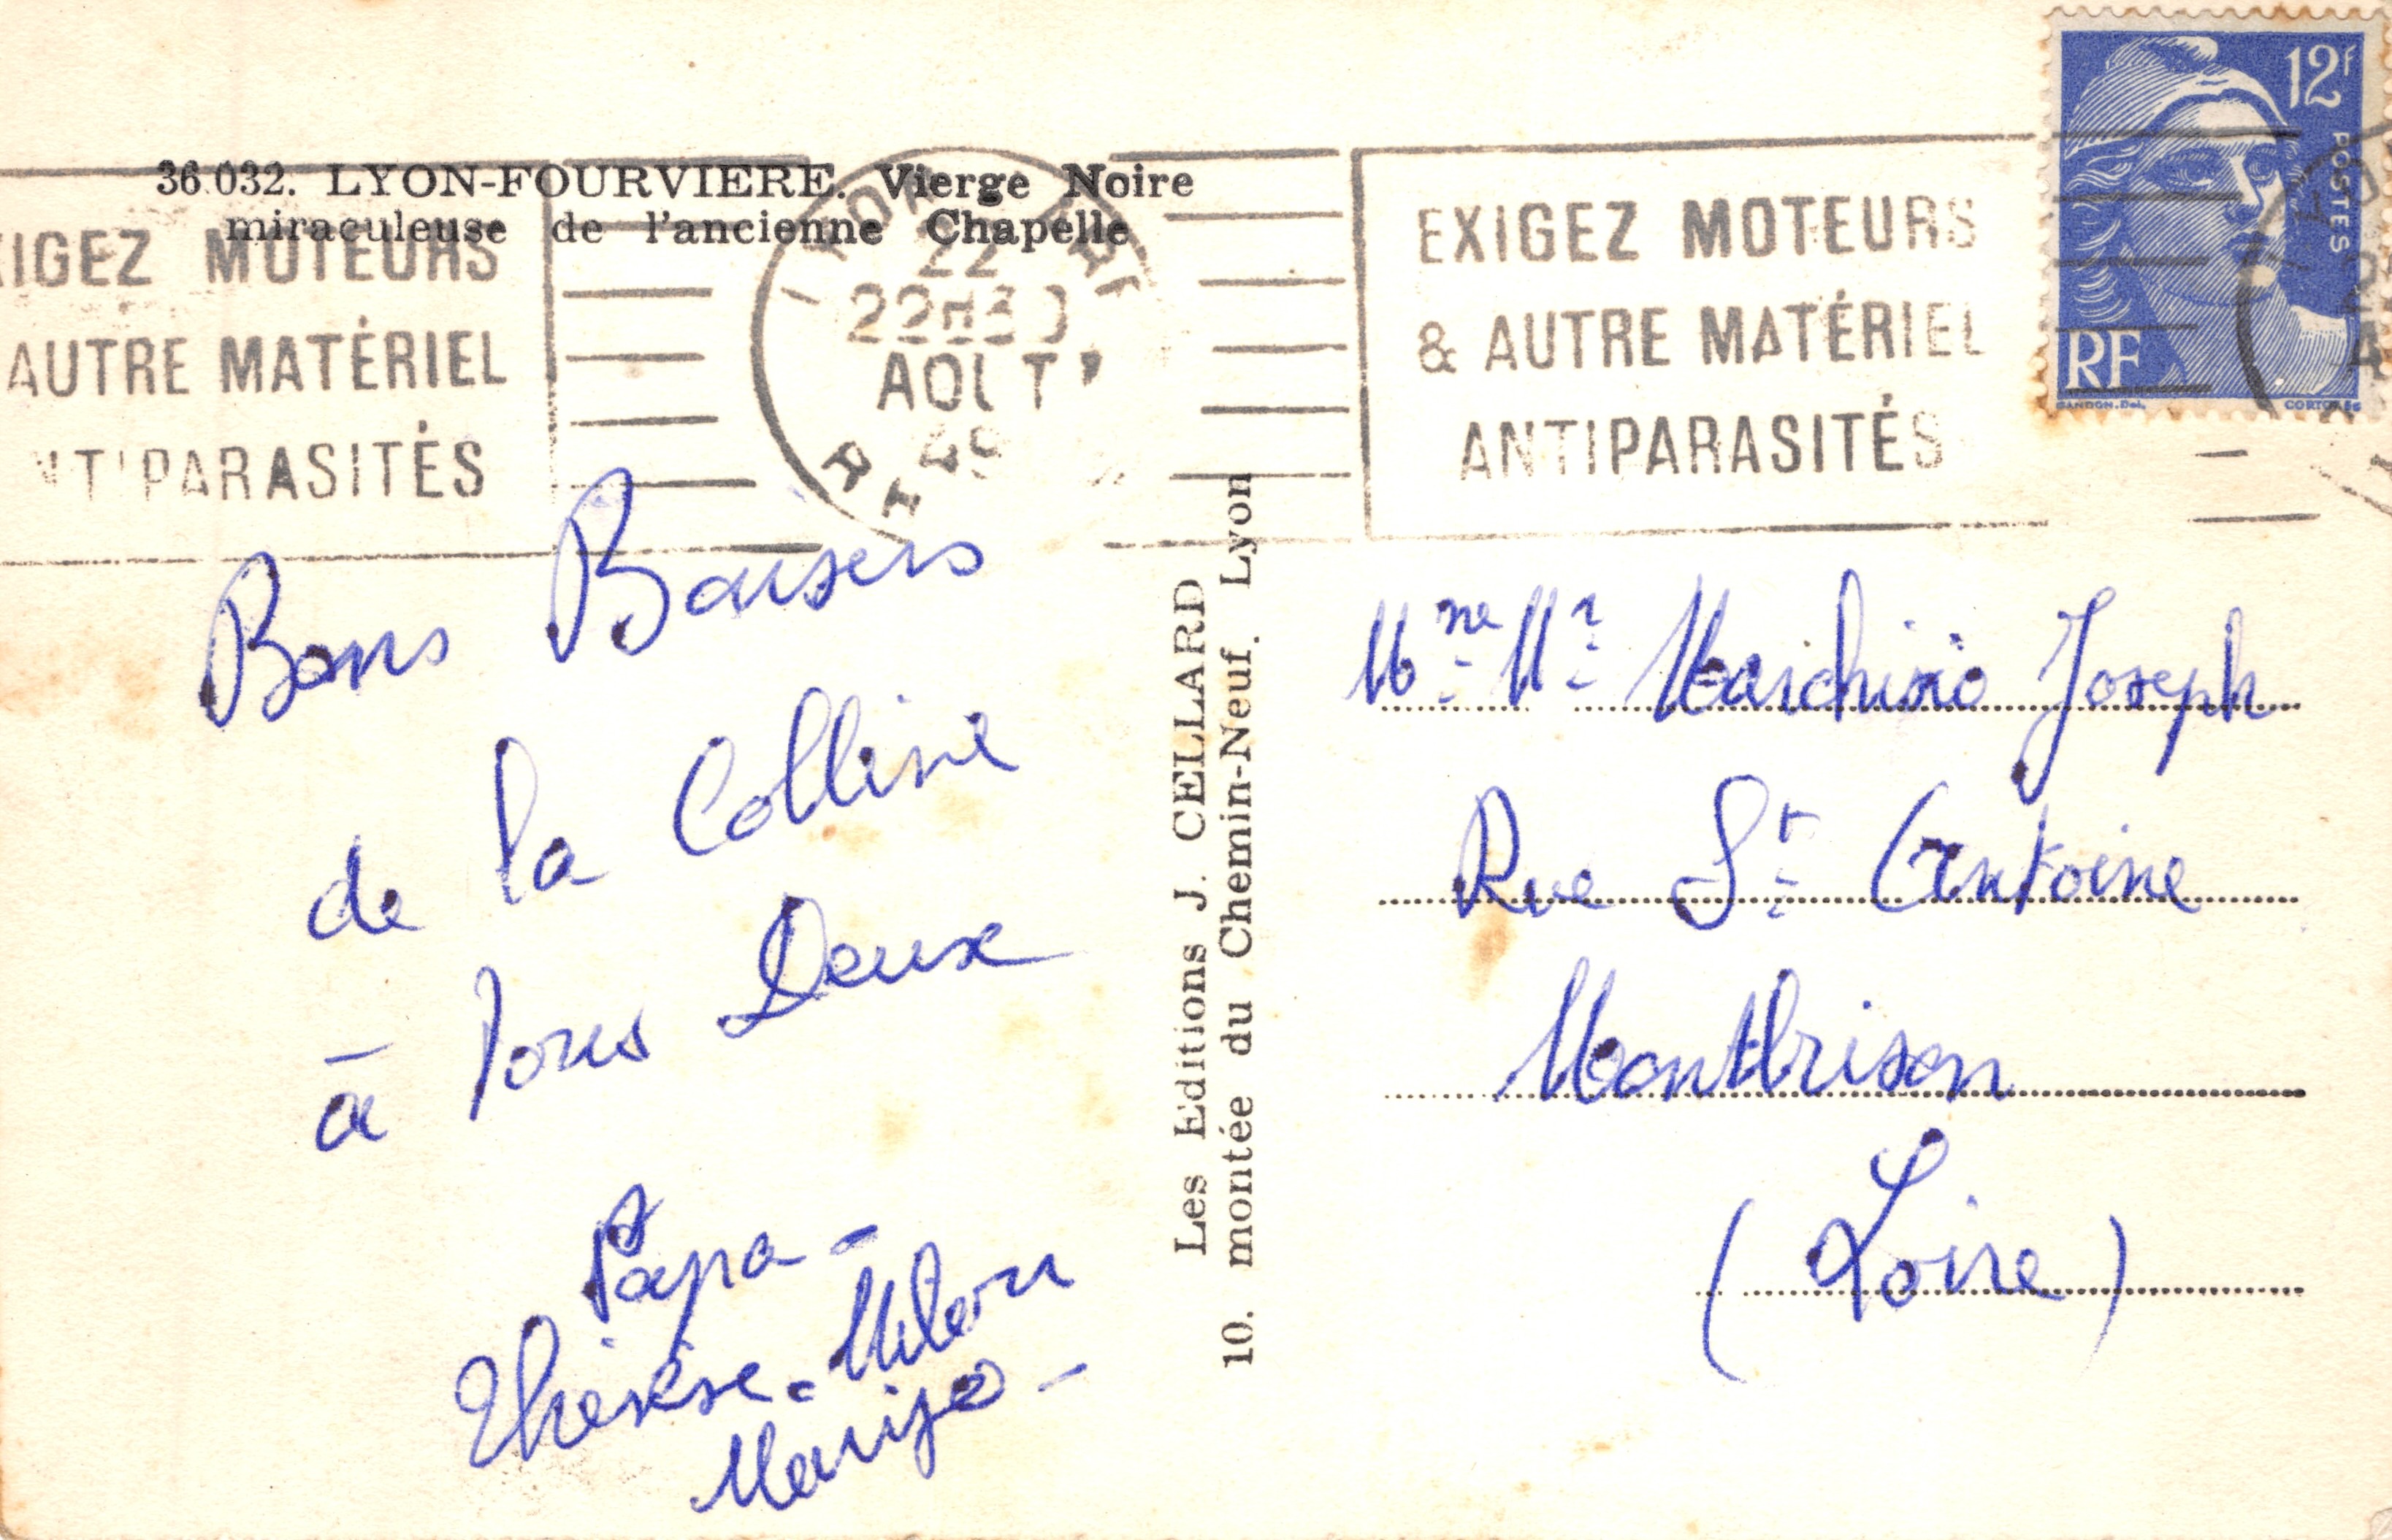 36.032. LYON-FOURVIERE. Vierge Noire
miraculeuse de l'ancienne Chapelle
XIGEZ MOTEURS
AUTRE MATÉRIEL
NTIPARASITÉS
22
22H30
AOUT
49
EXIGEZ MOTEURS
& AUTRE MATÉRIEL
ANTIPARASITÉS
12F
POSTES
RF
GANDON. Del.
Bons Baisers
de la Colline
à Tous Deux
Papa -
Thérèse - Milou
Marijo -
Les Editions J. CELLARD
10. montée du Chemin-Neuf. Lyon
Mme Mr Joseph
Rue St Antoine
Montbrison
(Loire)